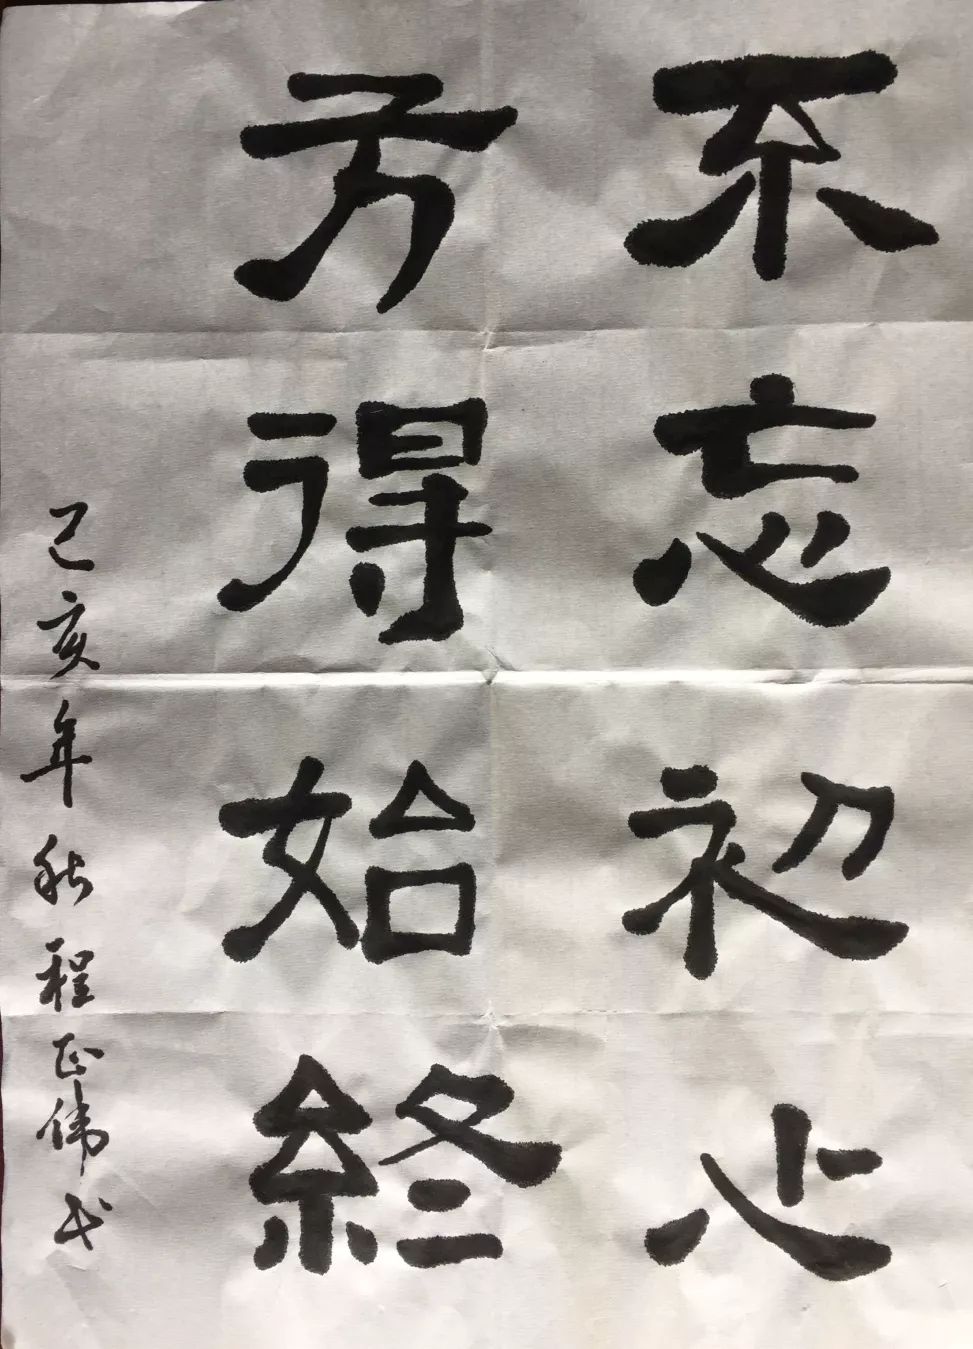 不忘初心
方得始終
己亥年秋程正伟书